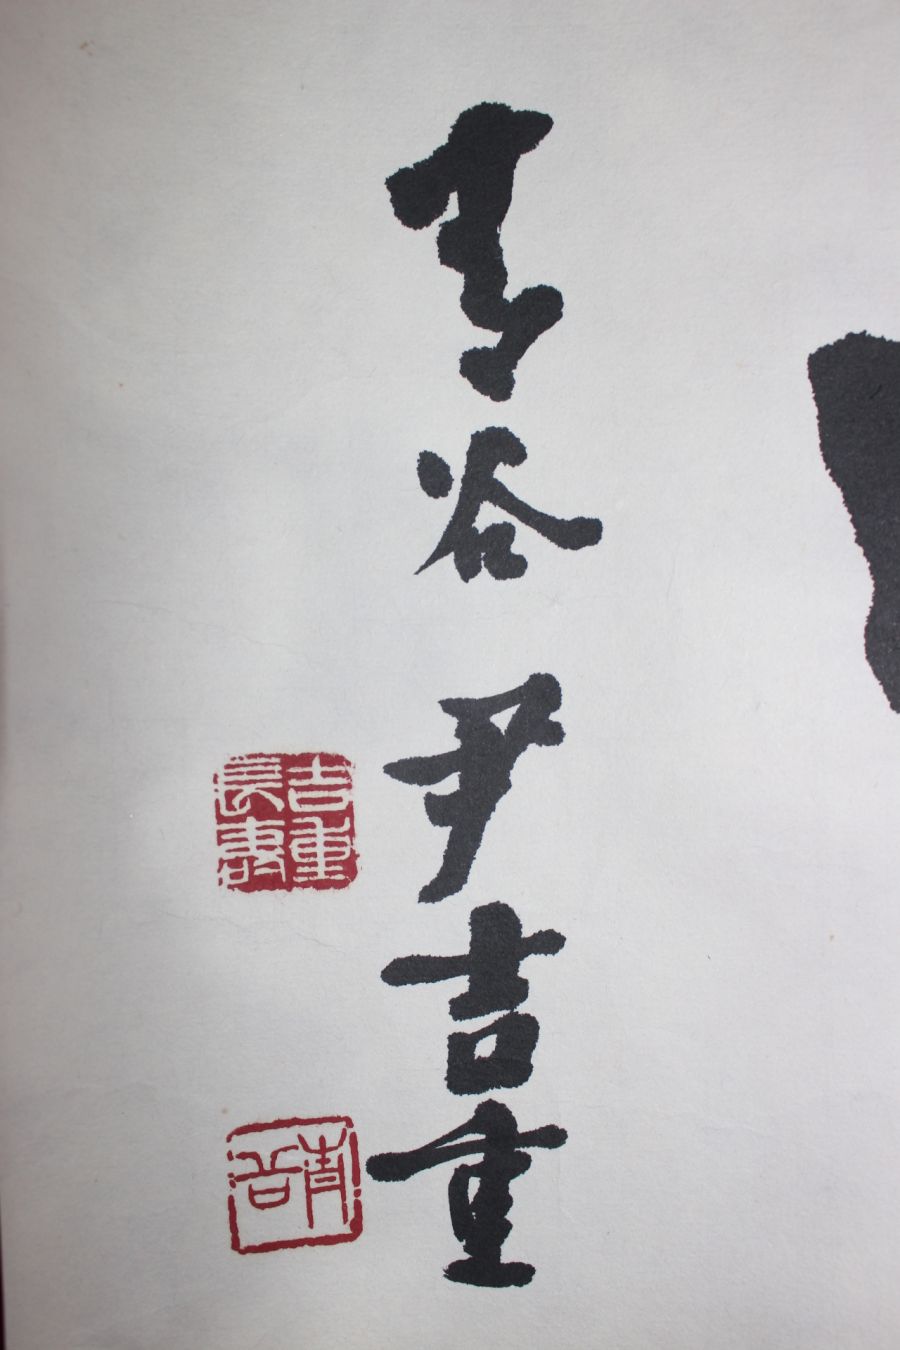 青谷 尹吉重
吉重
長壽
青谷